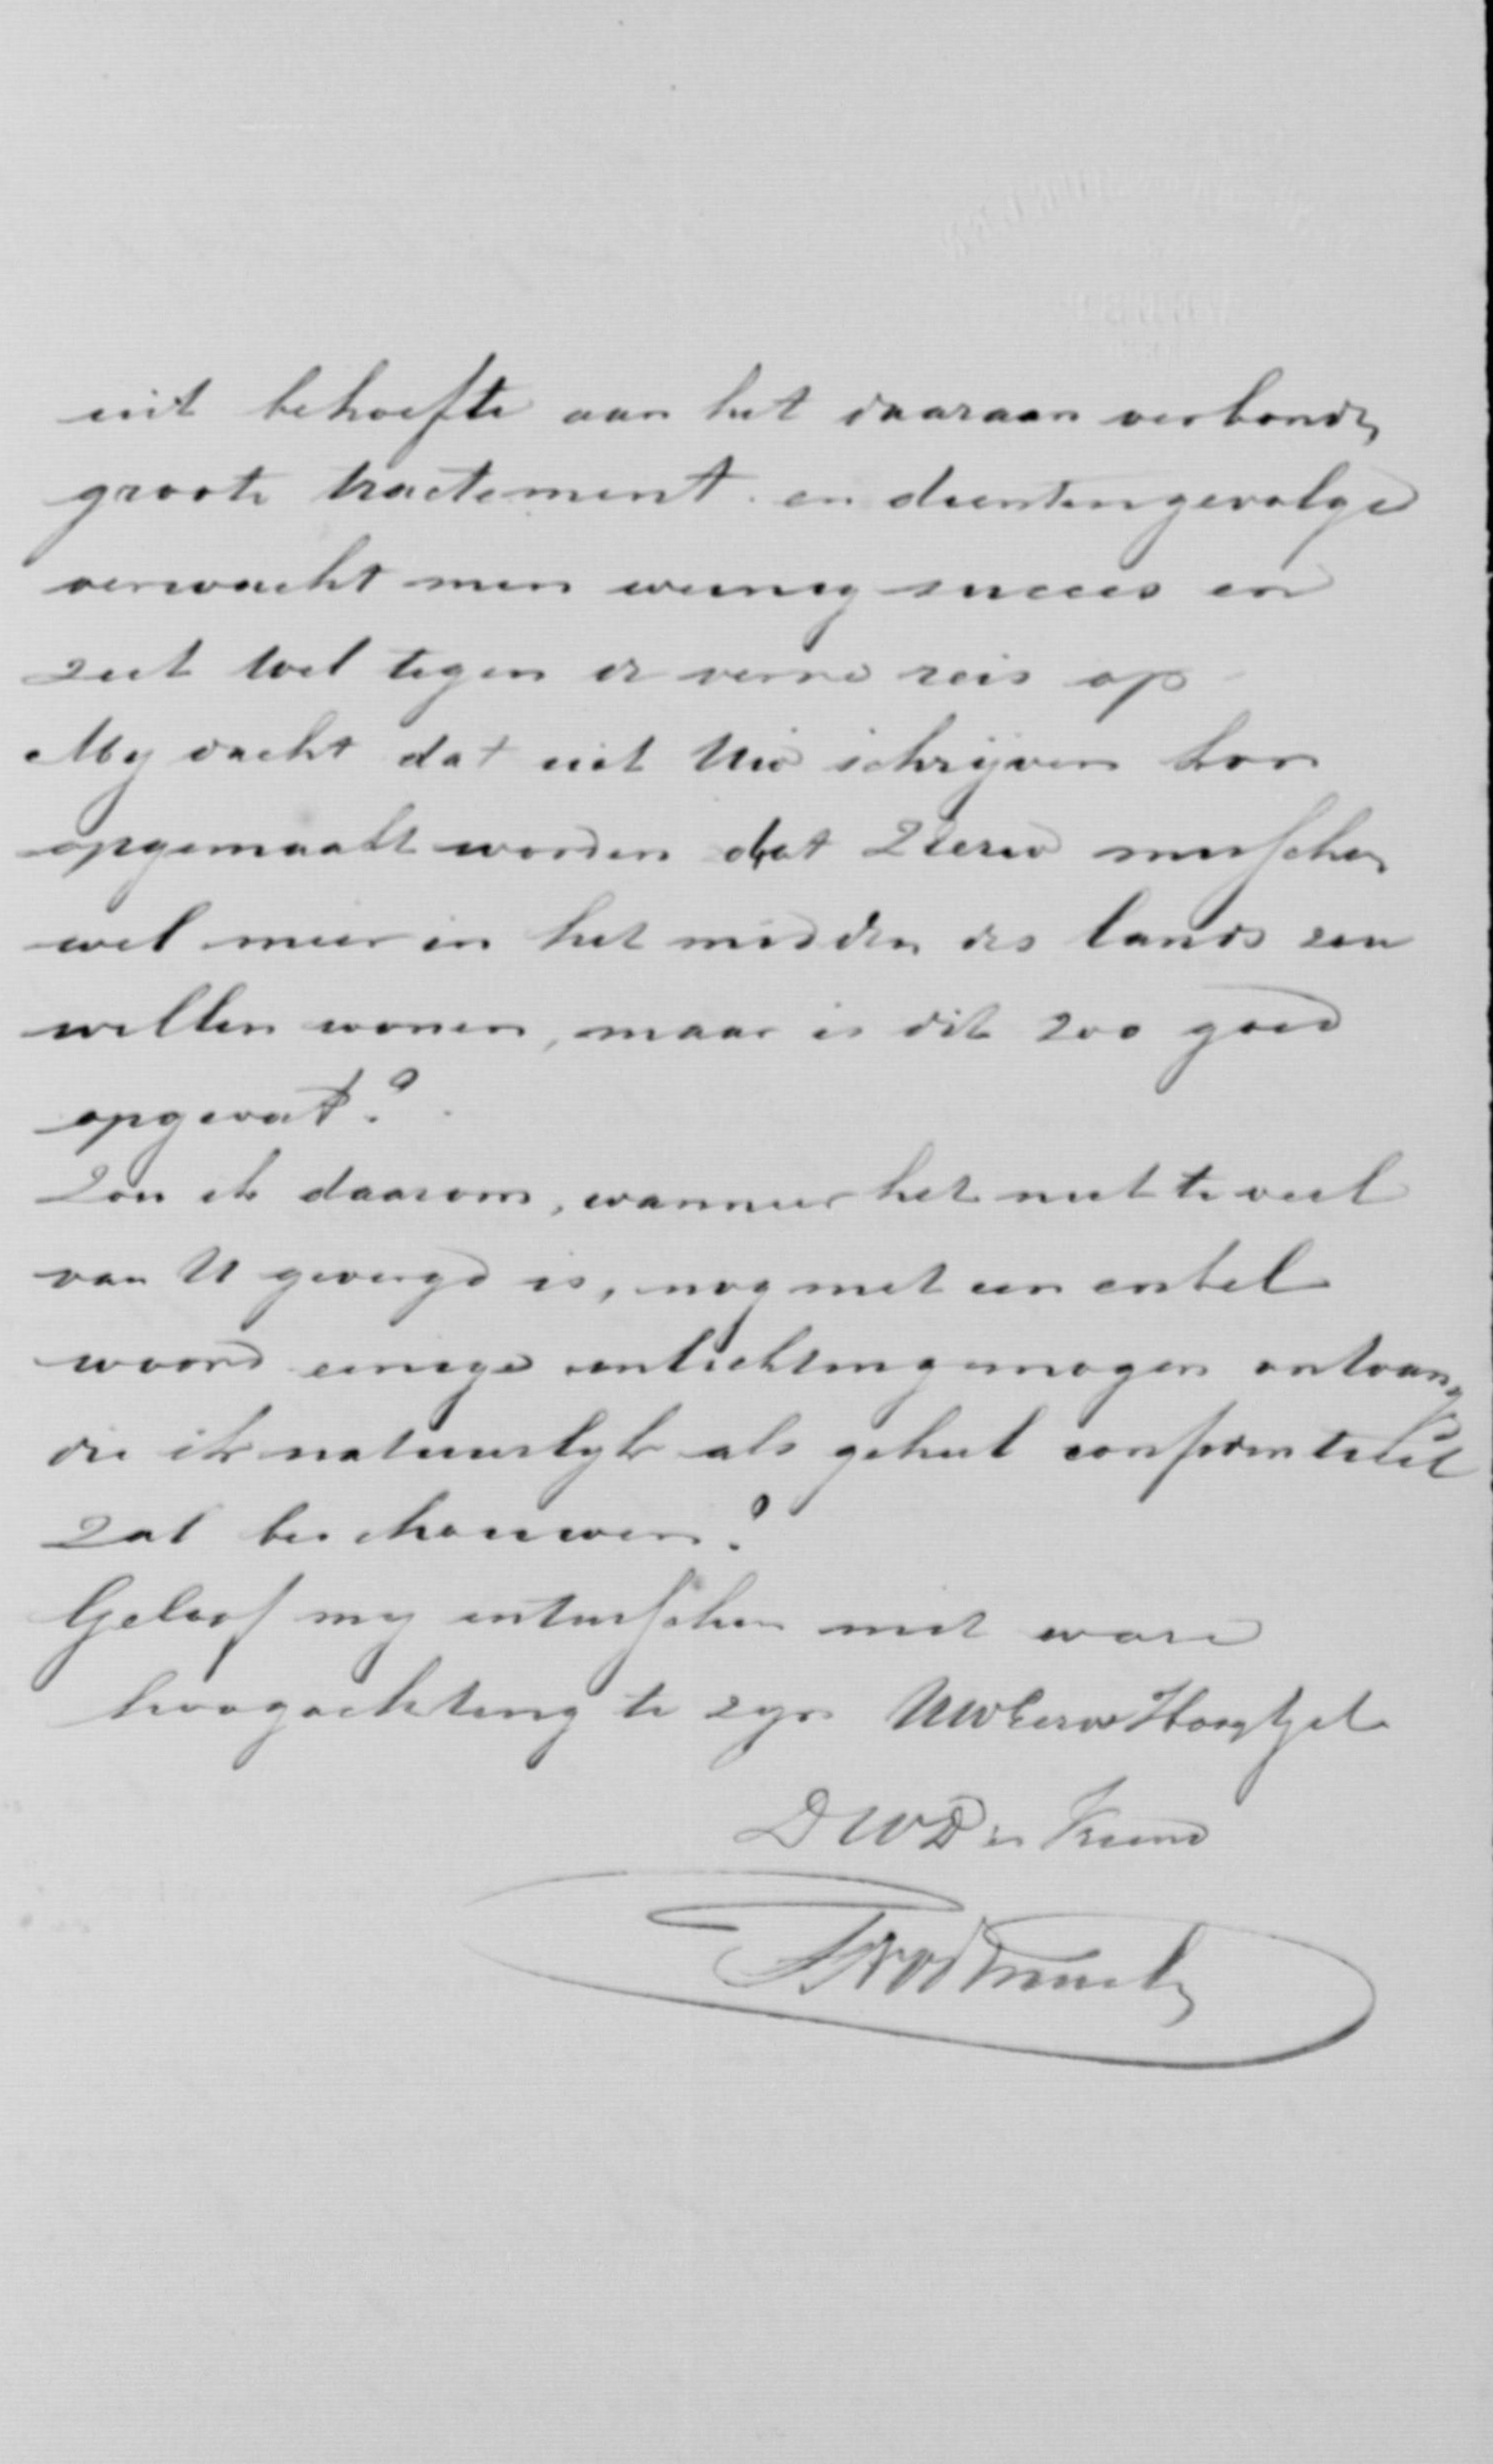 uit behoefte aan het daaraan verbonden
groote tractement en dientengevolge
verwacht men weinig succes en
ziet wel tegen de verre reis op
My dacht dat uit Uw schrijven kon
opgemaakt worden dat ZEerw misschien
wel meer in het midden des lands zou
willen wonen, maar is dit zoo goed
opgevat?
Zou ik daarom, wanneer het niet te veel
van U gevergd is, nog met een enkel
woord eenige inlichting mogen ontvangen
die ik natuurlyk als geheel confidentieel
zal beschouwen?
Geloof my intusschen met ware
hoogachting te zyn UwEerw Hooggel
DWD en Vriend